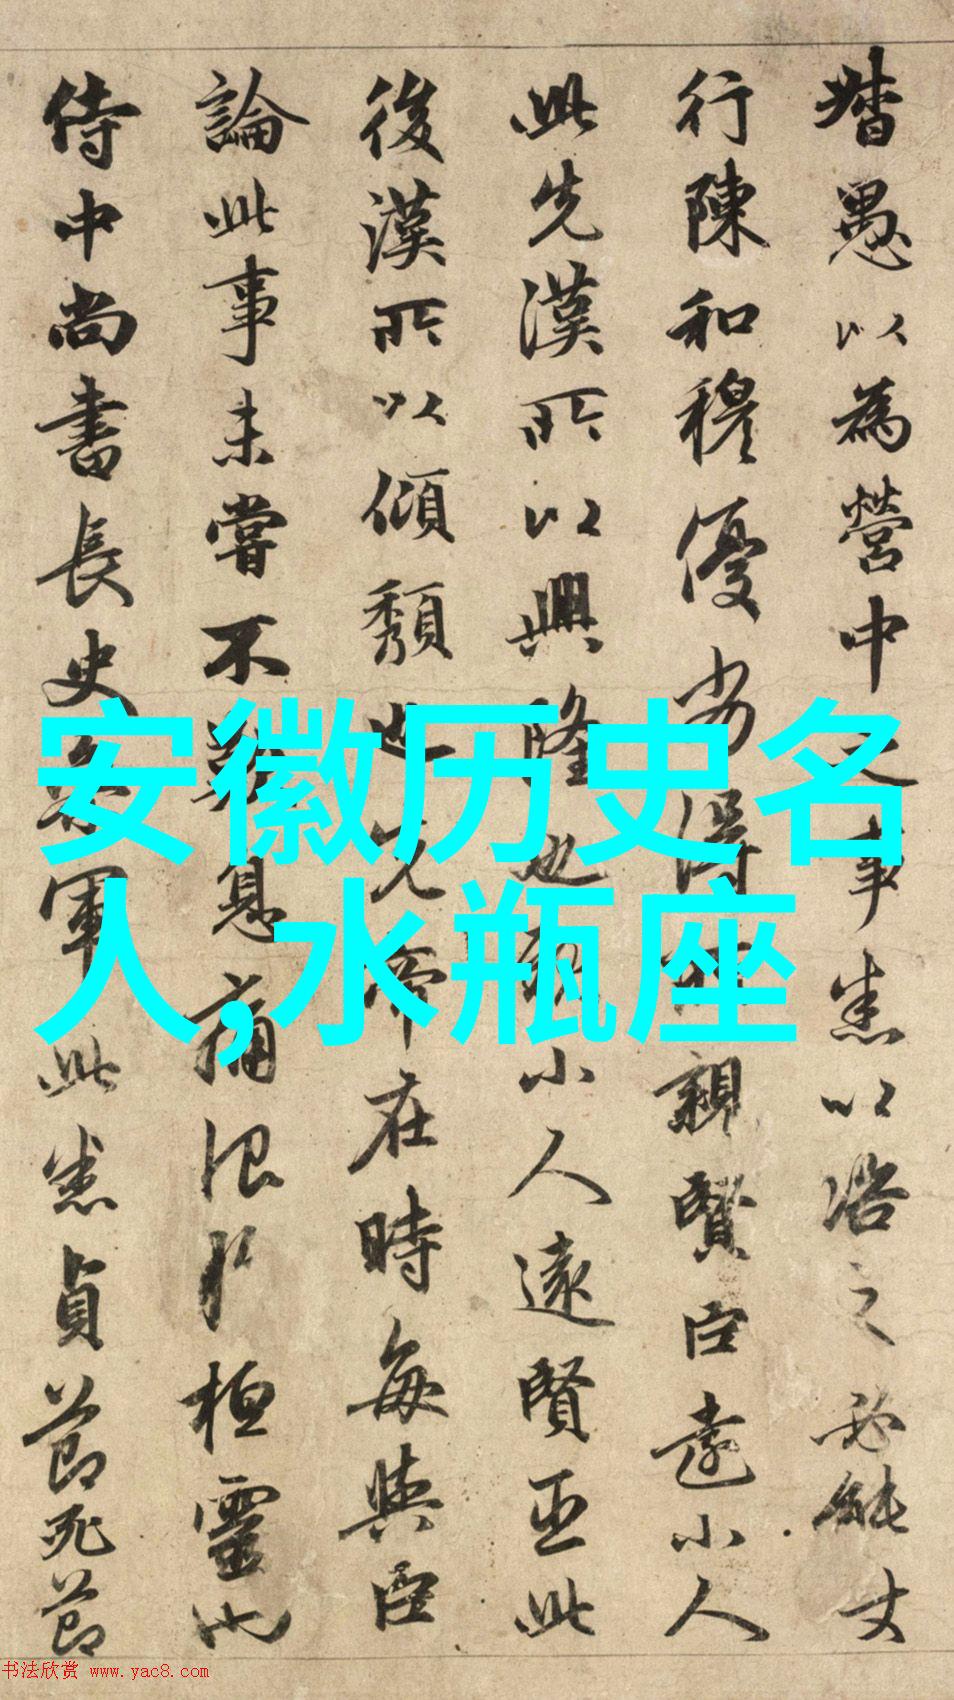 督愚以為營中之事悉以咨之必能丈
行陳和穆優劣得所親賢臣遠小人
此先漢所以興隆也親小人遠賢臣此
後漢所以傾頹也先帝在時每與臣
論此事未嘗不歎息痛恨於桓靈也
侍中尚書長史參軍此悉貞節死節
安徽历史名
人,水瓶座
书法欣赏 www.yac8.com